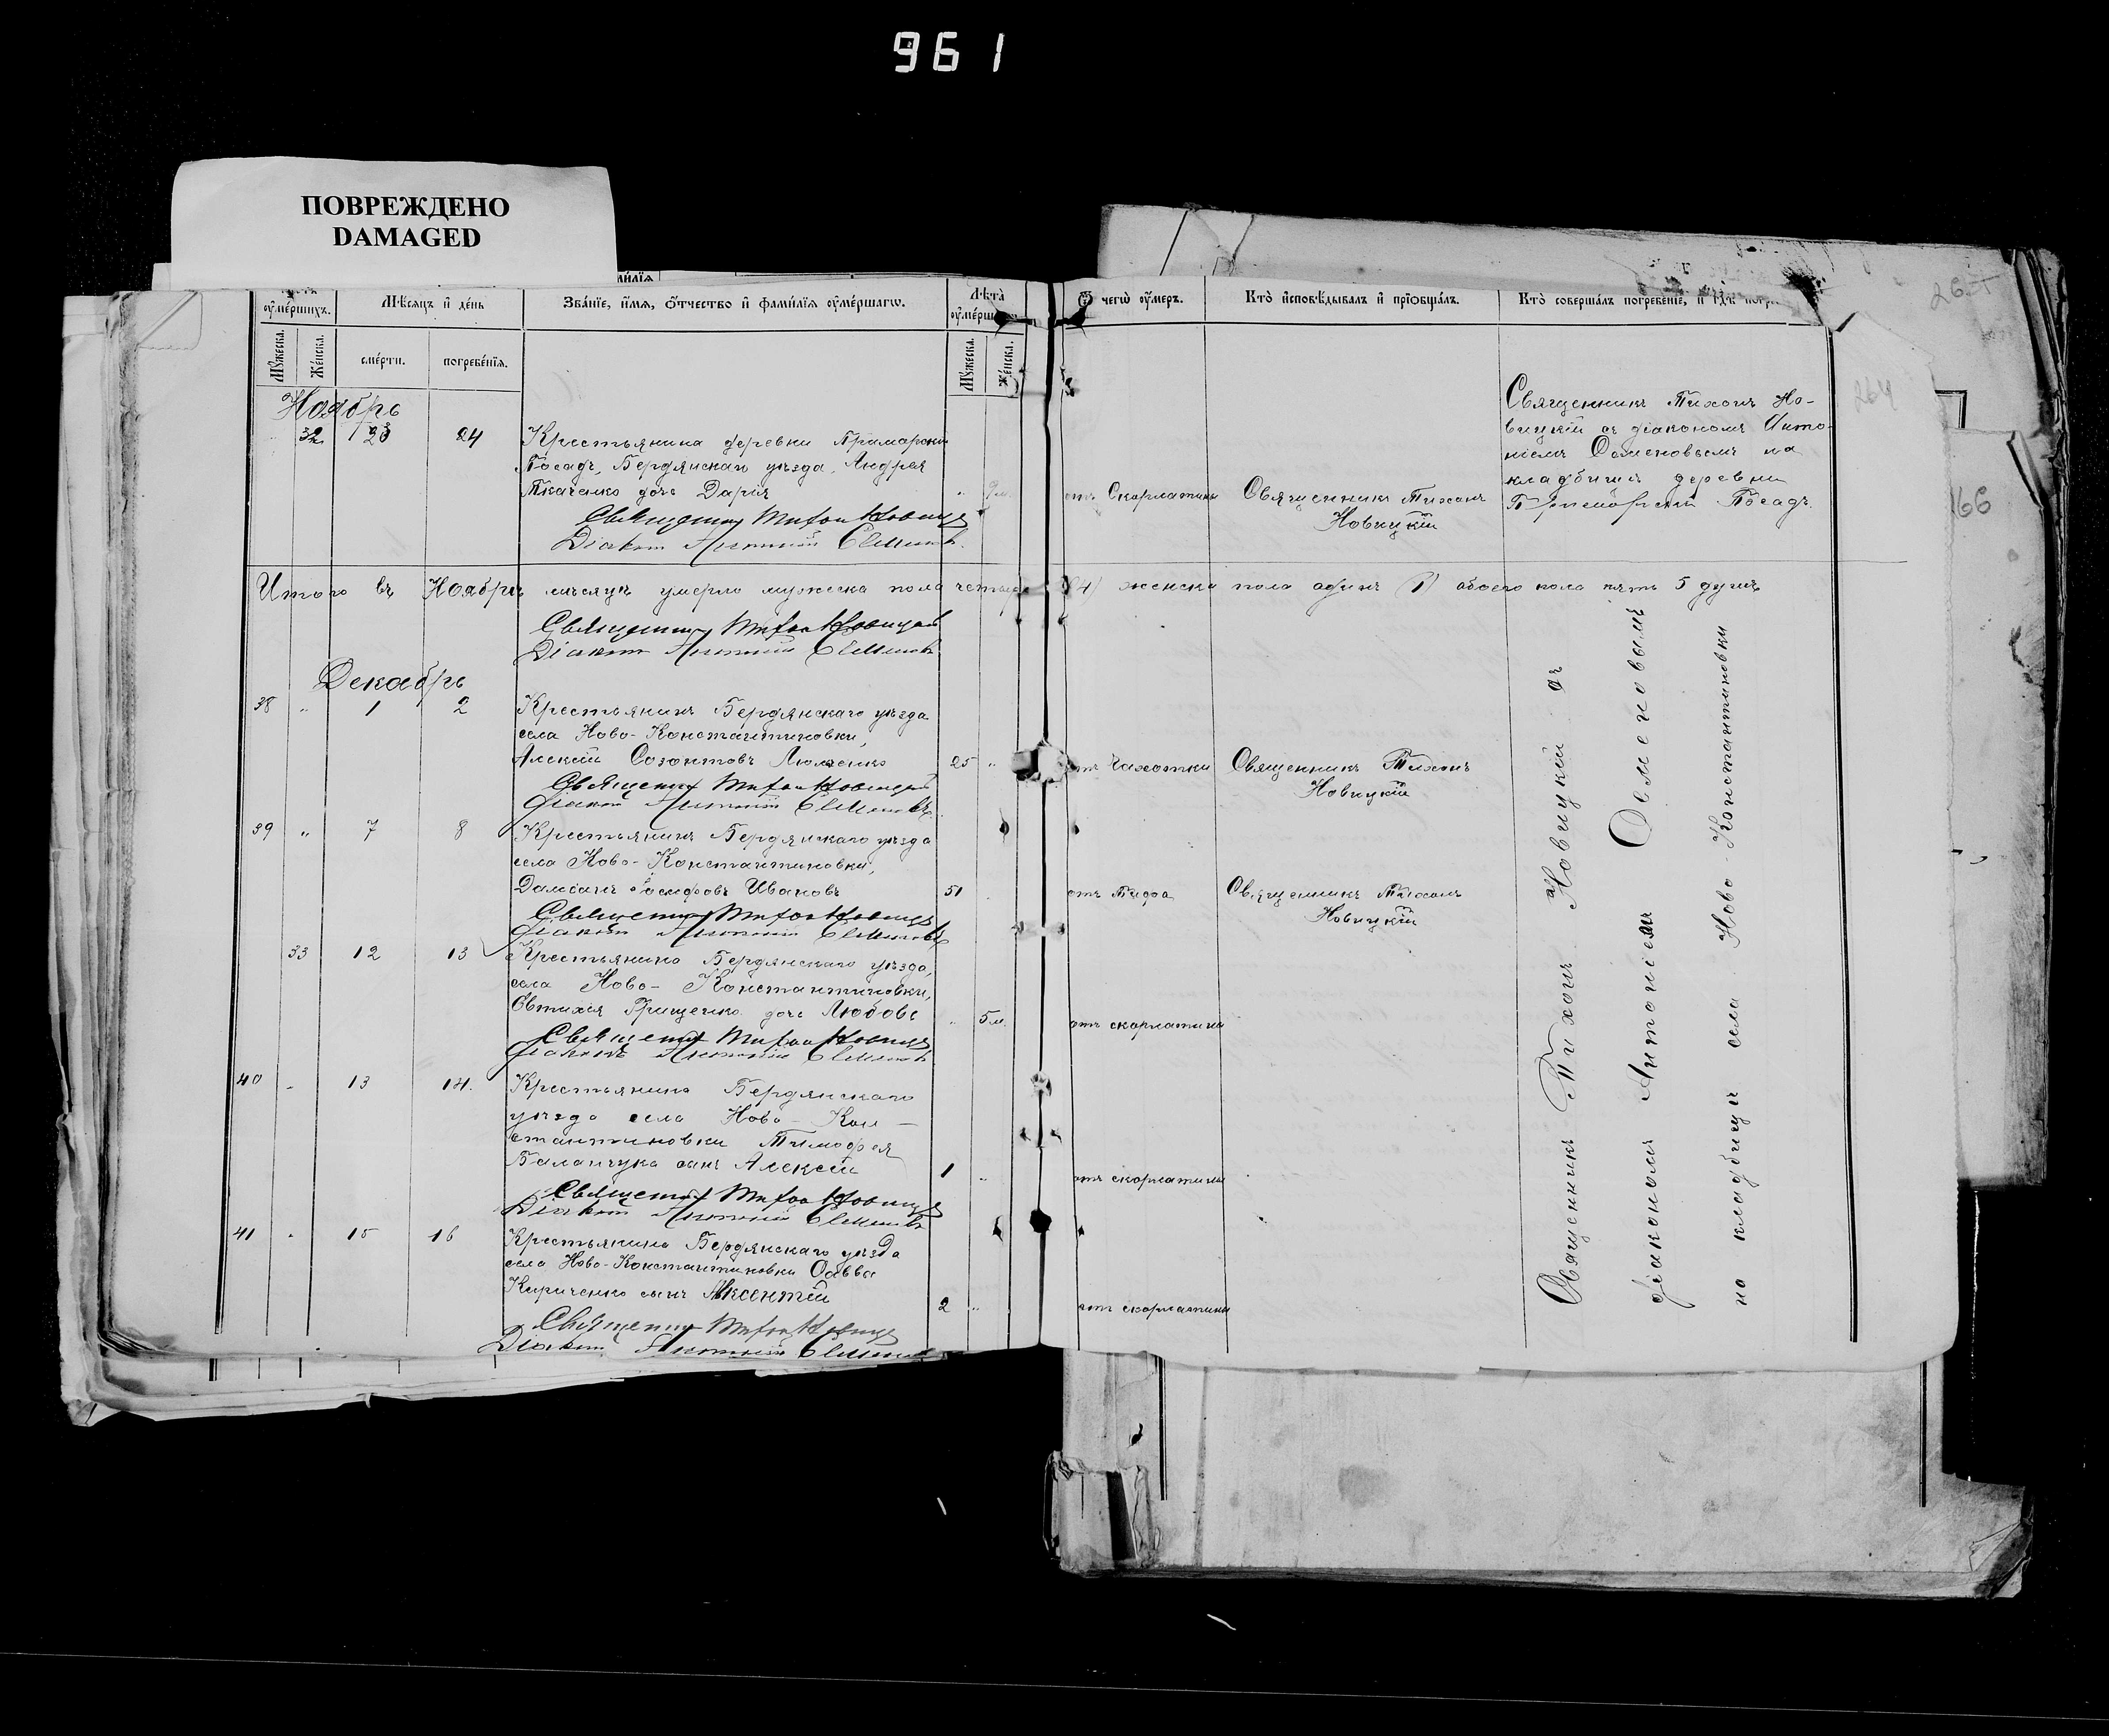 961
ПОВРЕЖДЕНО
DAMAGED
оумершихъ.
Мѣсяцъ и день
Званіе, имя, отчество и фамилія оумершагw.
Лѣта
оумерш
Мужеска.
Женска.
смерти.
погребенія.
Мужеска.
Женска.
чегw оумеръ.
Кто исповѣдывалъ и пріобщалъ.
Кто совершалъ погребеніе, и гдѣ погр
264
166
Ноябрь
32 23 24
Крестьянина деревни Приморскій
Посадъ, Бердянскаго уѣзда, Андрея
Ткаченко дочь Дарія
„ 9 м.
отъ Скорлатины
Священникъ Тихонъ
Новицкій
Священникъ Тихонъ Но-
вицкій съ діакономъ Анто-
ніемъ Семеновымъ на
кладбищѣ деревни
Приморскій Посадъ.
Священникъ Тихонъ Новицкій
Діаконъ Антоній Семеновъ
Итого въ Ноябрѣ мѣсяцѣ умерло мужеска пола четыре (4) женска пола одинъ (1) обоего пола пять 5 душъ
Священникъ Тихонъ Новицкій
Діаконъ Антоній Семеновъ
Декабрь
38 „ 1 2
Крестьянинъ Бердянскаго уѣзда
села Ново-Константиновки,
Алексій Созонтовъ
25 „
отъ Чахотки
Священникъ Тихонъ
Новицкій
Священникъ Тихонъ Новицкій
Діаконъ Антоній Семеновъ
39 „ 7 8
Крестьянинъ Бердянскаго уѣзда
села Ново-Константиновки,
Даміанъ Іосифовъ Ивановъ
51
отъ Тифа
Священникъ Тихонъ
Новицкій
Священникъ Тихонъ Новицкій
Діаконъ Антоній Семеновъ
33 12 13
Крестьянина Бердянскаго уѣзда,
села Ново-Константиновки,
Евтихія Грищенко дочь Любовь
„ 5 м.
отъ скорлатины
Священникъ Тихонъ Новицкій
Діаконъ Антоній Семеновъ
40 „ 13 14.
Крестьянина Бердянскаго
уѣзда села Ново-Кон-
стантиновки Тимофея
Баланчука сынъ Алексій
1 „
отъ скорлатины
Священникъ Тихонъ Новицкій
Діаконъ Антоній Семеновъ
41 „ 15 16
Крестьянина Бердянскаго уѣзда
села Ново-Константиновки Савва
Кириченко сынъ Авксентій
2 „
отъ скорлатины
Священникъ Тихонъ Новицкій
Діаконъ Антоній Семеновъ
Священникъ Тихонъ Новицкій съ
діакономъ Антоніемъ Семеновымъ
на кладбищѣ села Ново-Константиновки